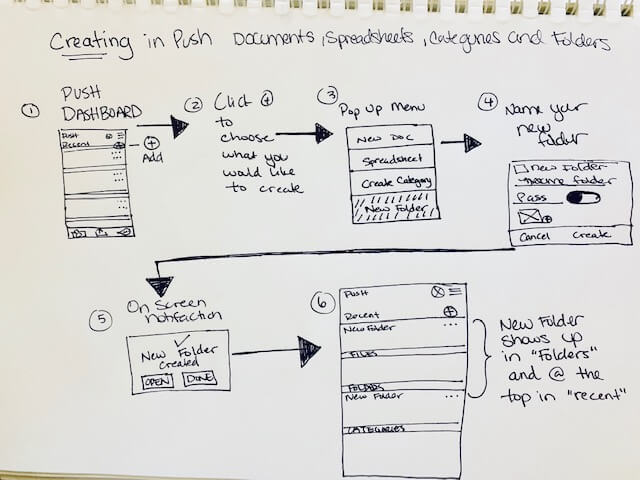 Creating in Push Documents, Spreadsheets, Categories and Folders
①
PUSH
DASHBOARD
Push
Recent
Add
②
Click ⊕
to
choose
what you
would like
to create
③
Pop up menu
New Doc
Spreadsheet
Create Category
New Folder
④
Name your
new
folder
New Folder
Folder
Pass
Cancel Create
⑤
On Screen
Notifaction
New Folder
Created
OPEN DONE
⑥
Push
Recent
New Folder
FILES
FOLDERS
New Folder
CATEGARIES
New Folder
shows up
in "Folders"
and @ the
top in "recent"